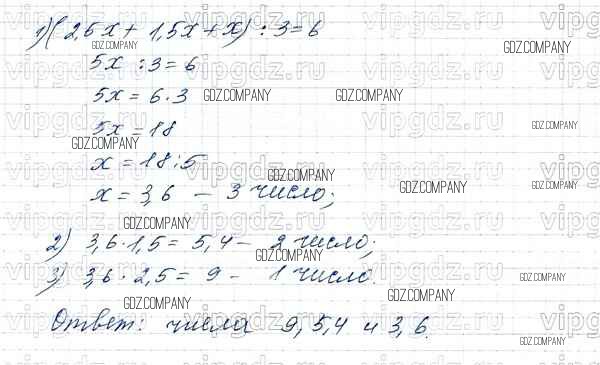 1) (2,5x + 1,5x + x) : 3 = 6
5x : 3 = 6
5x = 6 · 3
5x = 18
x = 18 : 5
x = 3,6 – 3 число;
2) 3,6 · 1,5 = 5,4 – 2 число;
3) 3,6 · 2,5 = 9 – 1 число.
Ответ: числа 9, 5,4 и 3,6.
vipgdz.ru
GDZ.COMPANY